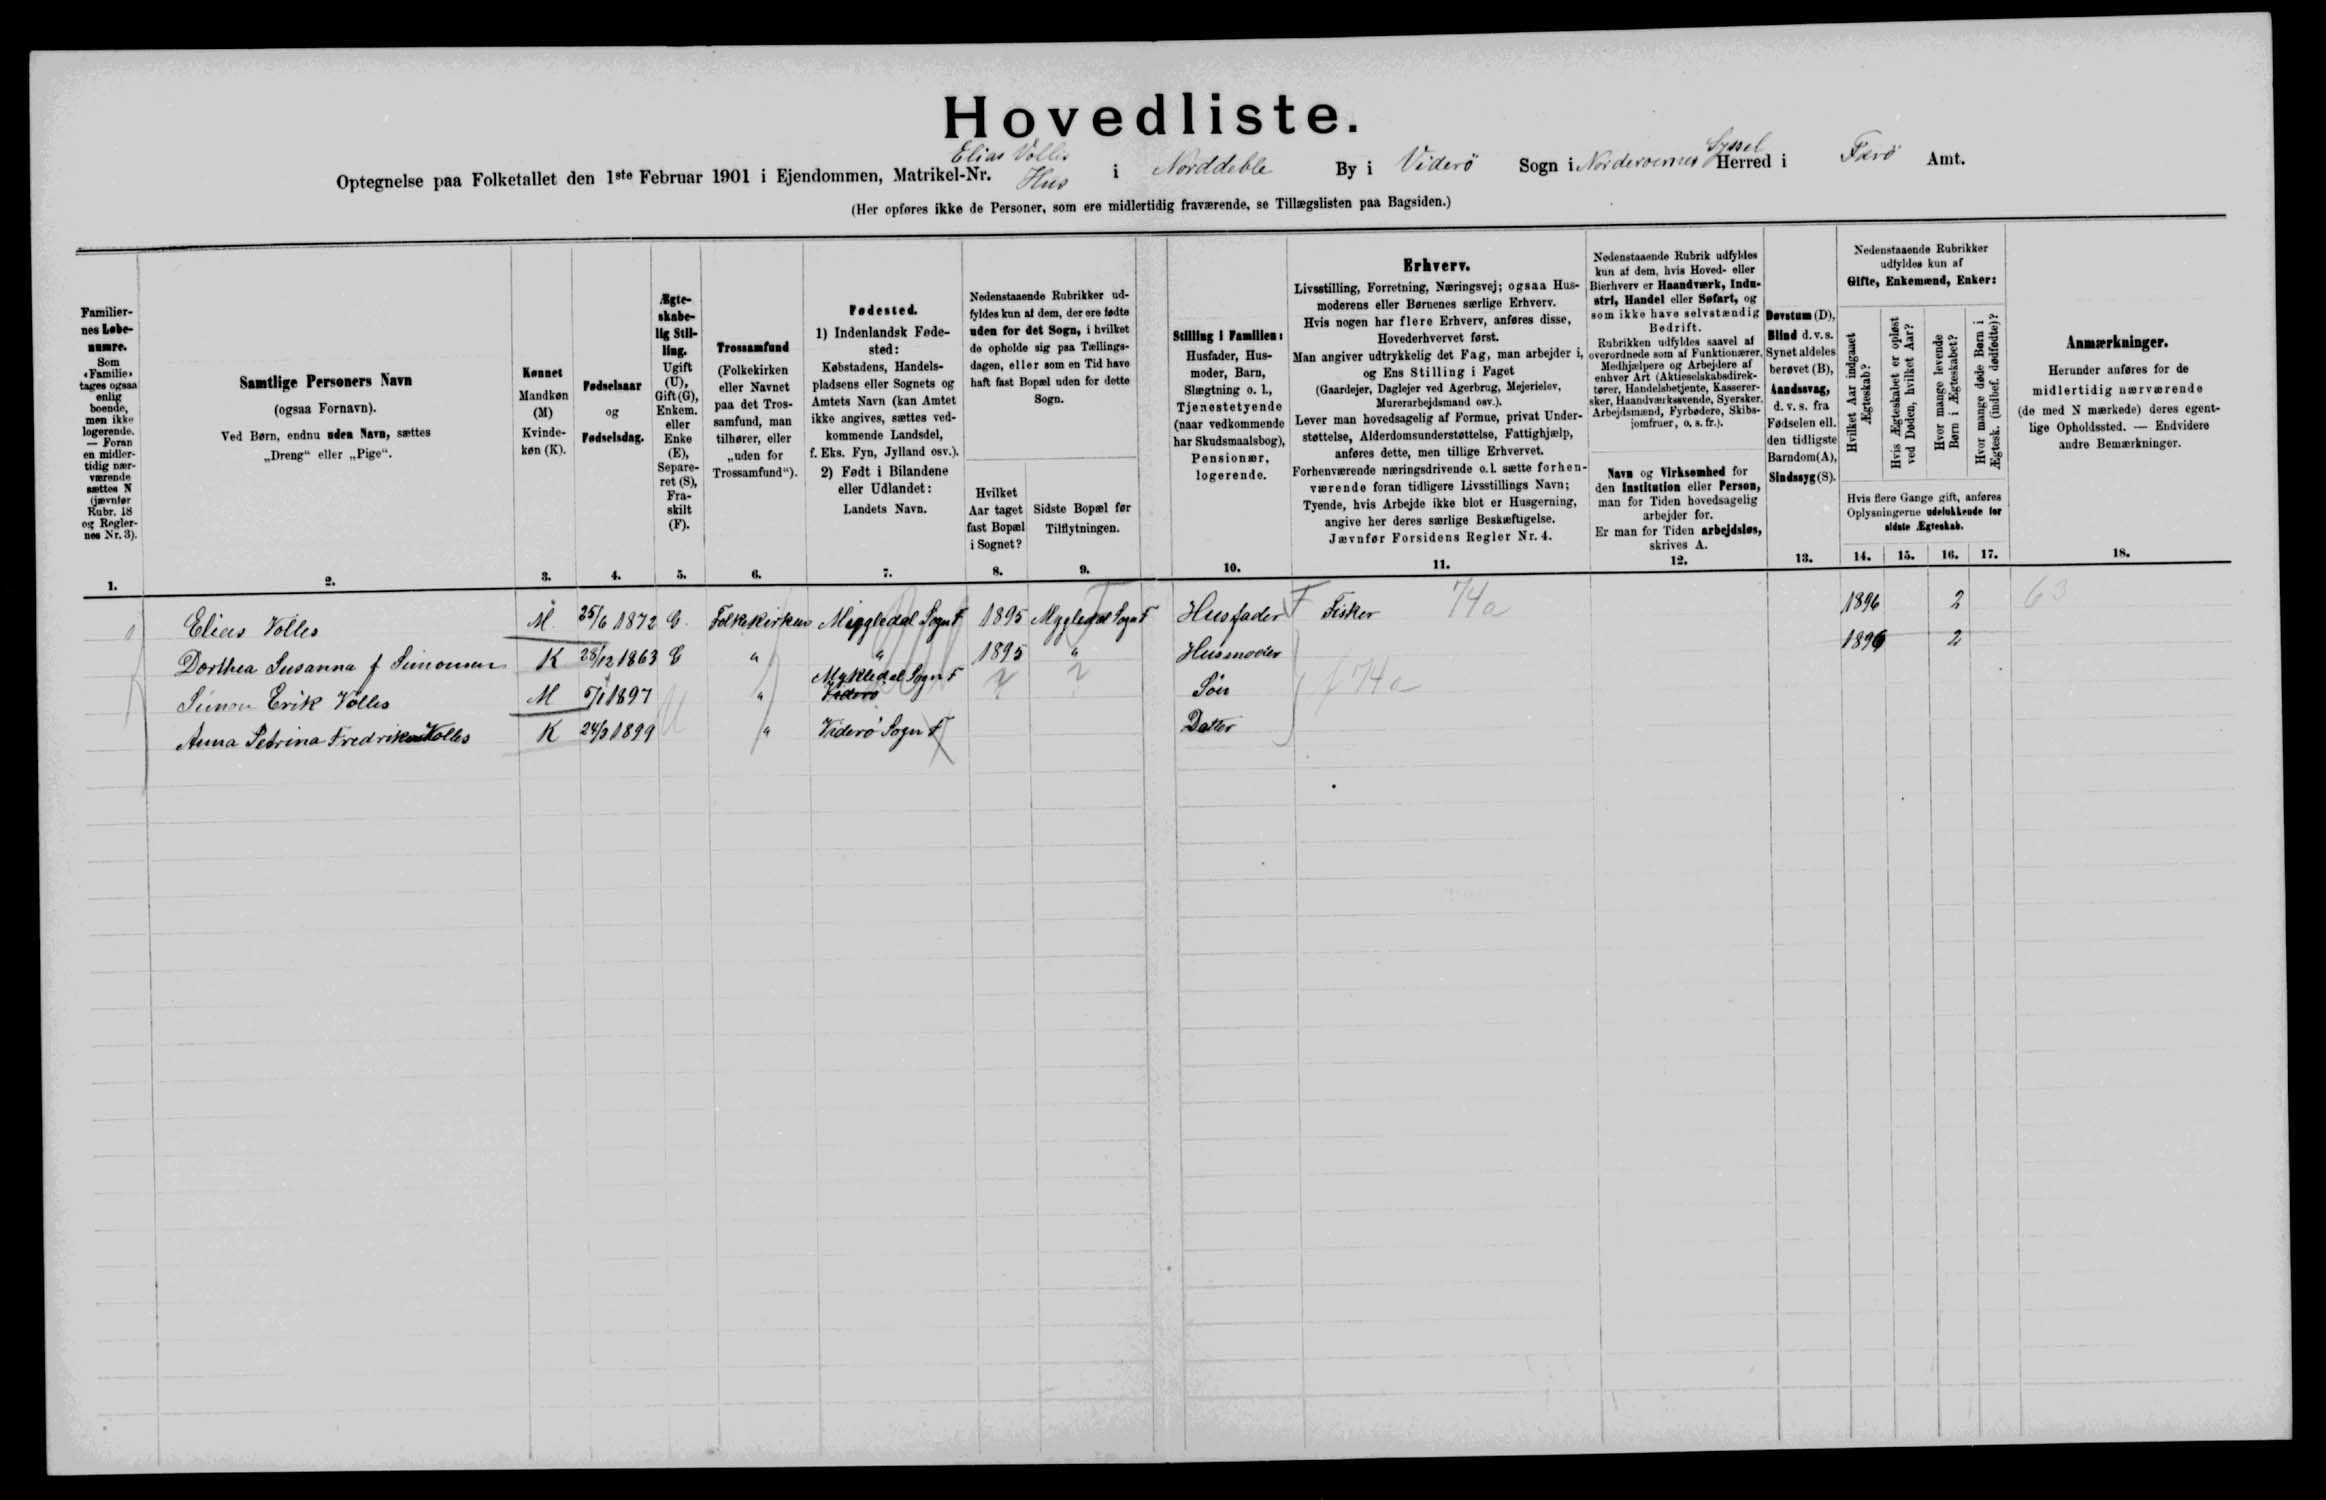 Hovedliste.
Optegnelse paa Folketallet den 1ste Februar 1901 i Ejendommen, Matrikel-Nr. Elias Volles Hus i Norddeble By i Viderö Sogn i Norderoernes Syssel Herred i Færö Amt.
(Her opføres ikke de Personer, som ere midlertidig fraværende, se Tillægslisten paa Bagsiden.)
Familiernes Løbenumre.
Som «Familie» tages ogsaa enlig boende, men ikke logerende. — Foran en midlertidig nærværende sættes N (jævnfør Rubr. 18 og Reglernes Nr. 3).
Samtlige Personers Navn
(ogsaa Fornavn).
Ved Børn, endnu uden Navn, sættes
„Dreng“ eller „Pige“.
Kønnet
Mandkøn
(M)
Kvindekøn (K).
Fødselsaar
og
Fødselsdag.
Ægteskabelig Stilling.
Ugift (U), Gift (G), Enkem. eller Enke (E), Separeret (S), Fraskilt (F).
Trossamfund
(Folkekirken eller Navnet paa det Trossamfund, man tilhører, eller „uden for Trossamfund“).
Fødested.
1) Indenlandsk Fødested:
Købstadens, Handelspladsens eller Sognets og Amtets Navn (kan Amtet ikke angives, sættes vedkommende Landsdel, f. Eks. Fyn, Jylland osv.).
2) Født i Bilandene eller Udlandet:
Landets Navn.
Nedenstaaende Rubrikker udfyldes kun af dem, der ere fødte uden for det Sogn, i hvilket de opholde sig paa Tællingsdagen, eller som en Tid have haft fast Bopæl uden for dette Sogn.
Hvilket Aar taget fast Bopæl i Sognet?
Sidste Bopæl før Tilflytningen.
Stilling i Familien:
Husfader, Husmoder, Barn, Slægtning o. l., Tjenestetyende (naar vedkommende har Skudsmaalsbog), Pensionær, logerende.
Erhverv.
Livsstilling, Forretning, Næringsvej; ogsaa Husmoderens eller Børnenes særlige Erhverv.
Hvis nogen har flere Erhverv, anføres disse, Hovederhvervet først.
Man angiver udtrykkelig det Fag, man arbejder i, og Ens Stilling i Faget
(Gaardejer, Daglejer ved Agerbrug, Mejerielev, Murerarbejdsmand osv.).
Lever man hovedsagelig af Formue, privat Understøttelse, Alderdomsunderstøttelse, Fattighjælp, anføres dette, men tillige Erhvervet.
Forhenværende næringsdrivende o. l. sætte forhenværende foran tidligere Livsstillings Navn;
Tyende, hvis Arbejde ikke blot er Husgerning, angive her deres særlige Beskæftigelse.
Jævnfør Forsidens Regler Nr. 4.
Nedenstaaende Rubrik udfyldes kun af dem, hvis Hoved- eller Bierhverv er Haandværk, Industri, Handel eller Søfart, og som ikke have selvstændig Bedrift.
Rubrikken udfyldes saavel af overordnede som af Funktionærer, Medhjælpere og Arbejdere af enhver Art (Aktieselskabsdirektører, Handelsbetjente, Kasserersker, Haandværkssvende, Syersker, Arbejdsmænd, Fyrbødere, Skibsjomfruer, o. s. fr.).
Navn og Virksomhed for den Institution eller Person, man for Tiden hovedsagelig arbejder for.
Er man for Tiden arbejdsløs, skrives A.
Døvstum (D), Blind d. v. s. Synet aldeles berøvet (B), Aandssvag, d. v. s. fra Fødselen ell. den tidligste Barndom (A), Sindssyg (S).
Nedenstaaende Rubrikker udfyldes kun af
Gifte, Enkemænd, Enker:
Hvilket Aar indgaaet Ægteskab?
Hvis Ægteskabet er opløst ved Døden, hvilket Aar?
Hvor mange levende Børn i Ægteskabet?
Hvor mange døde Børn i Ægtesk. (indbef. dødfødte)?
Hvis flere Gange gift, anføres Oplysningerne udelukkende for sidste Ægteskab.
Anmærkninger.
Herunder anføres for de midlertidig nærværende (de med N mærkede) deres egentlige Opholdssted. — Endvidere andre Bemærkninger.
1. 2. 3. 4. 5. 6. 7. 8. 9. 10. 11. 12. 13. 14. 15. 16. 17. 18.
Elias Volles M 25/6 1872 G. Folkekirken Miggledal Sogn F 1895 Mygledal Sogn F Husfader F Fisker 74a 1896 2 63
Dorthea Susanna f Simonsen K 28/12 1863 G " " 1895 " Husmoder 1896 2
Simon Erik Volles M 5/1 1897 U " Mykledal Sogn F Viderö ? ? Sön 74a
Anna Petrina Fredrikea Volles K 24/3 1899 " Viderö Sogn F Datter